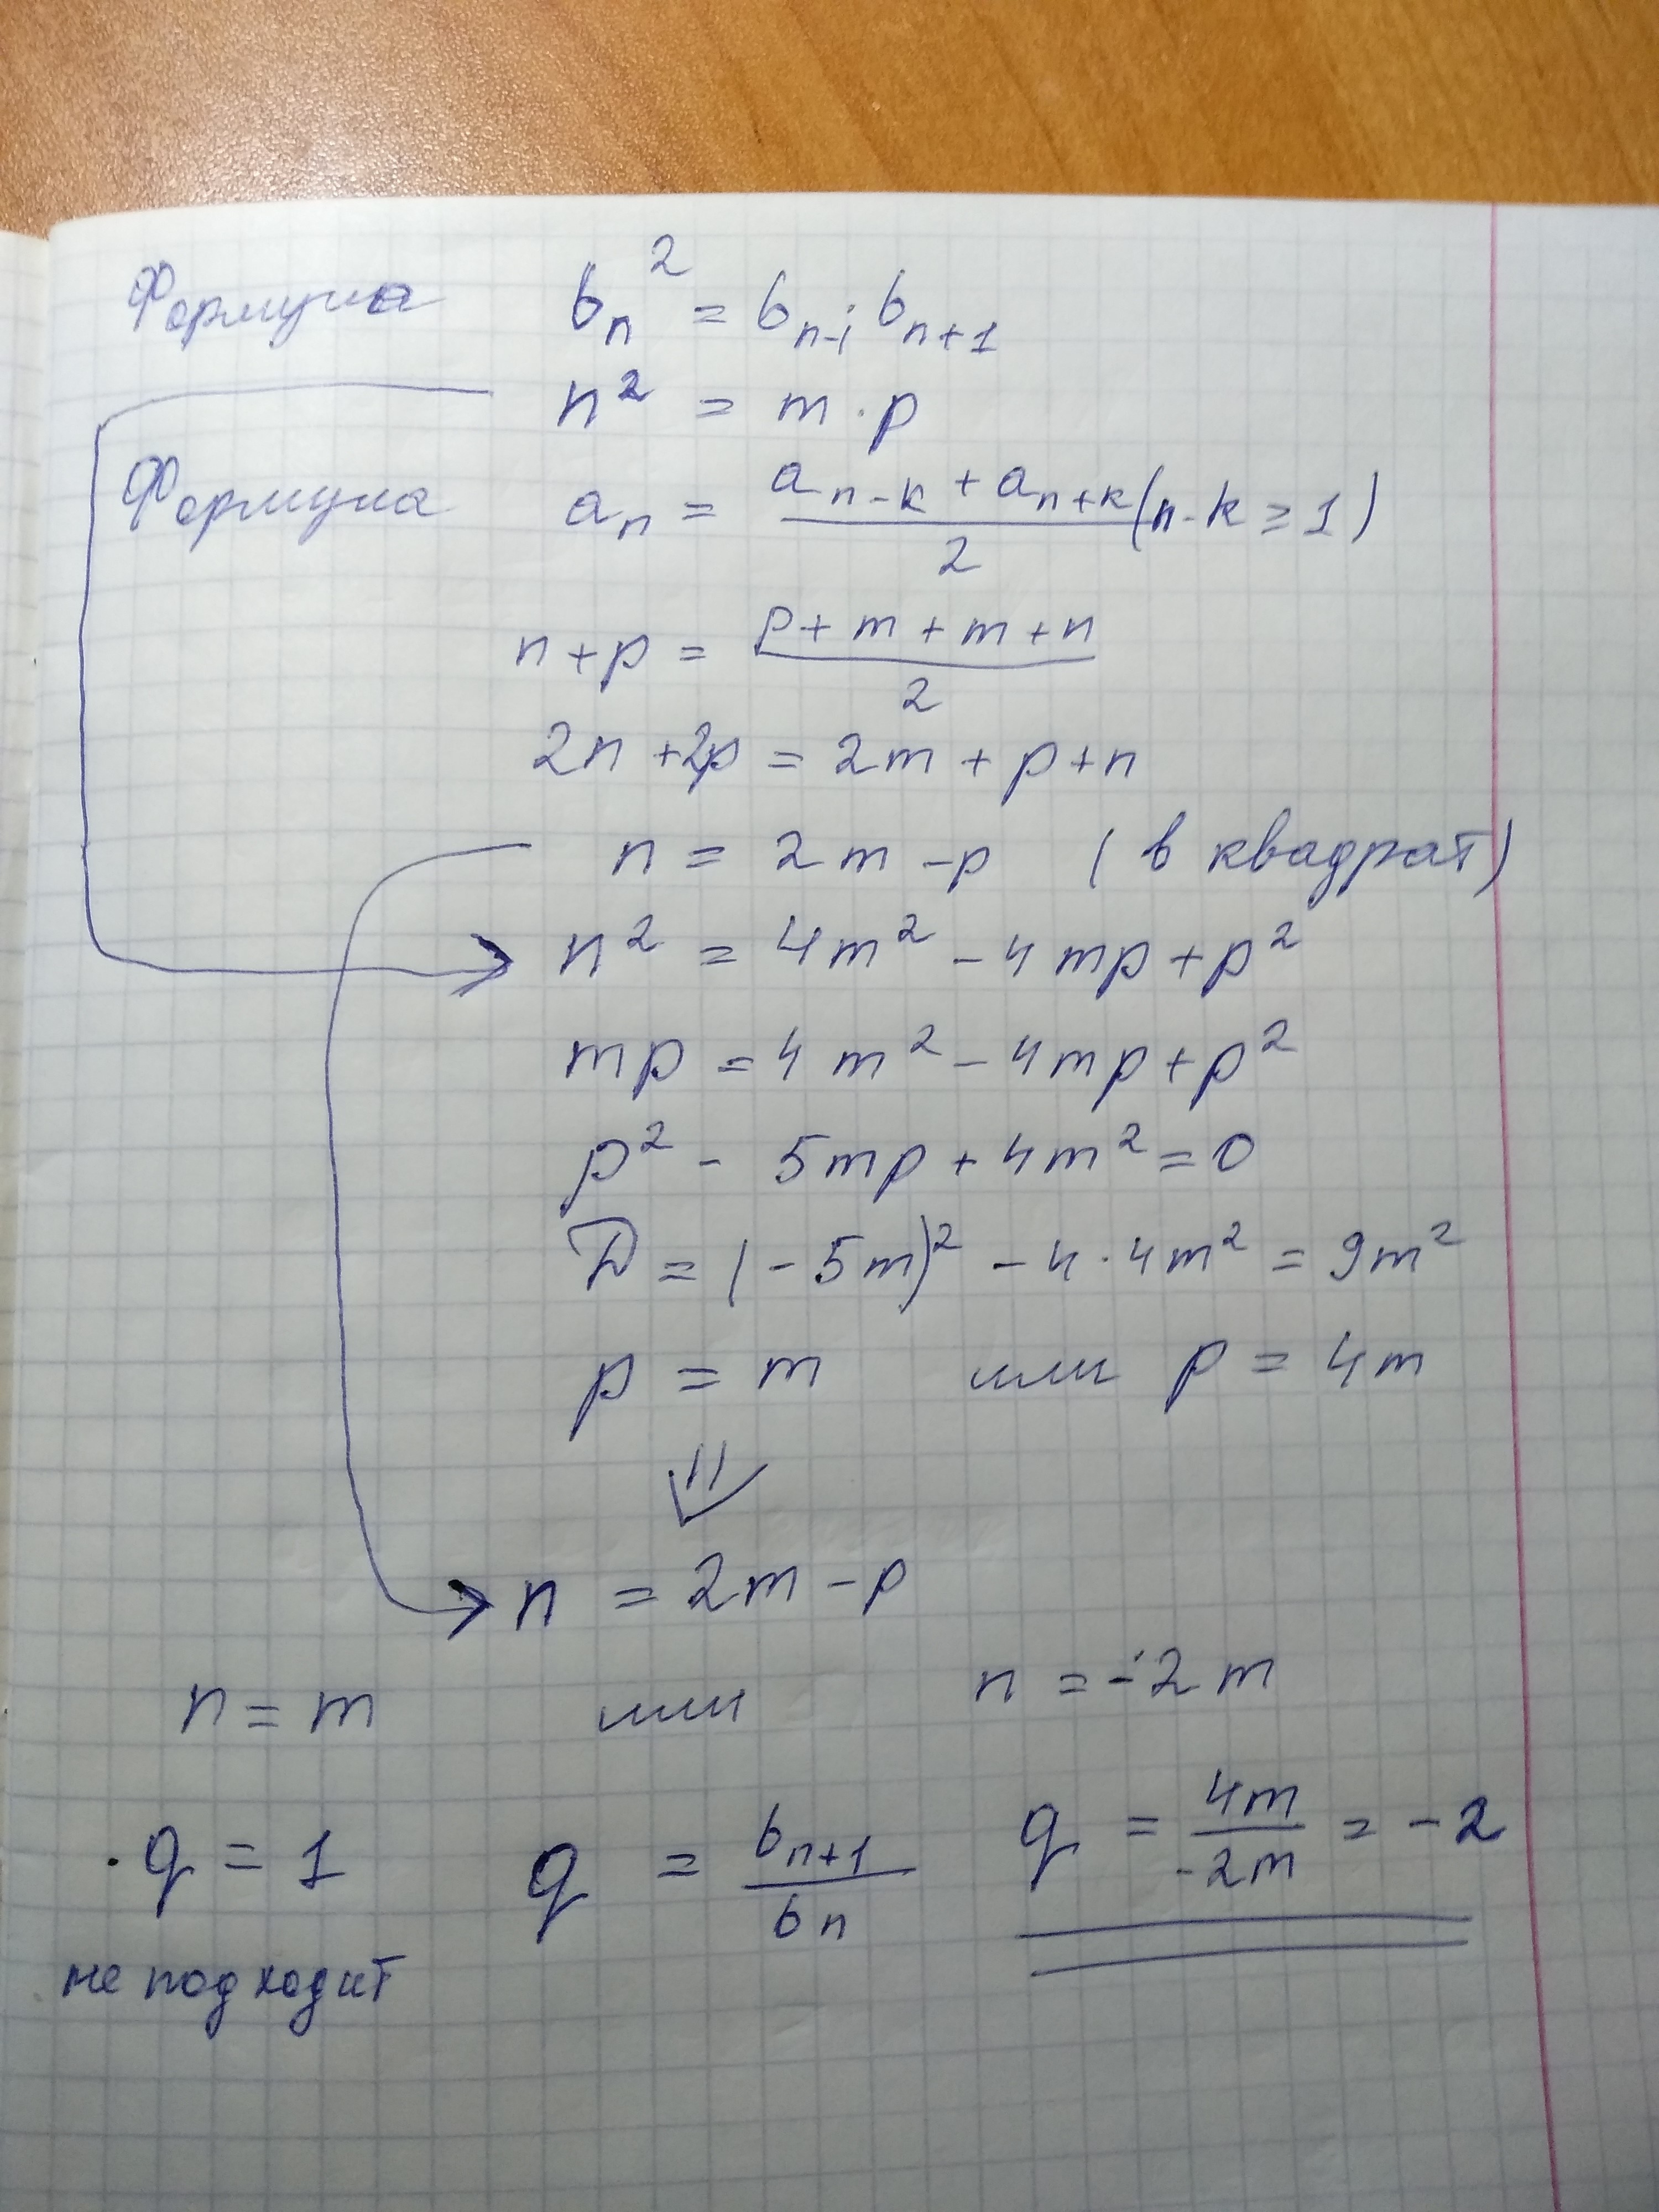 Формула b_n^2 = b_{n-1} · b_{n+1}
n^2 = m · p
Формула a_n = \frac{a_{n-k} + a_{n+k}}{2} (n-k ≥ 1)
n + p = \frac{p + m + m + n}{2}
2n + 2p = 2m + p + n
n = 2m - p (в квадрат)
n^2 = 4m^2 - 4mp + p^2
mp = 4m^2 - 4mp + p^2
p^2 - 5mp + 4m^2 = 0
D = (-5m)^2 - 4 · 4m^2 = 9m^2
p = m или p = 4m
n = 2m - p
n = m или n = -2m
q = 1 q = \frac{b_{n+1}}{b_n} q = \frac{4m}{-2m} = -2
не подходит